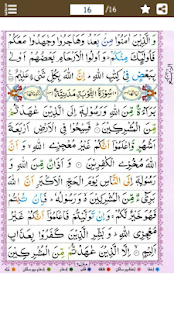 16 /16
وَالَّذِيْنَ اٰمَنُوْا مِنْۢ بَعْدُ وَهَاجَرُوْا وَجٰهَدُوْا مَعَكُمْ
فَاُولٰٓئِكَ مِنْكُمْ ؕ وَاُولُوا الْاَرْحَامِ بَعْضُهُمْ اَوْلٰى
بِبَعْضٍ فِىْ كِتٰبِ اللّٰهِ ؕ اِنَّ اللّٰهَ بِكُلِّ شَىْءٍ عَلِيْمٌ
سُوْرَةُ التَّوْبَةِ مَدَنِيَّةٌ
بَرَآءَةٌ مِّنَ اللّٰهِ وَرَسُوْلِهٖٓ اِلَى الَّذِيْنَ عٰهَدْتُّمْ
مِّنَ الْمُشْرِكِيْنَ فَسِيْحُوْا فِى الْاَرْضِ اَرْبَعَةَ
اَشْهُرٍ وَّاعْلَمُوْۤا اَنَّكُمْ غَيْرُ مُعْجِزِى اللّٰهِ ۙ وَاَنَّ
اللّٰهَ مُخْزِى الْكٰفِرِيْنَ وَاَذَانٌ مِّنَ اللّٰهِ
وَرَسُوْلِهٖٓ اِلَى النَّاسِ يَوْمَ الْحَجِّ الْاَكْبَرِ اَنَّ اللّٰهَ
بَرِىْٓءٌ مِّنَ الْمُشْرِكِيْنَ ۙ وَرَسُوْلُهٗ ؕ فَاِنْ تُبْتُمْ فَهُوَ
خَيْرٌ لَّكُمْ ۚ وَاِنْ تَوَلَّيْتُمْ فَاعْلَمُوْۤا اَنَّكُمْ غَيْرُ
مُعْجِزِى اللّٰهِ ؕ وَبَشِّرِ الَّذِيْنَ كَفَرُوْا بِعَذَابٍ
اَلِيْمٍ اِلَّا الَّذِيْنَ عٰهَدْتُّمْ مِّنَ الْمُشْرِكِيْنَ ثُمَّ